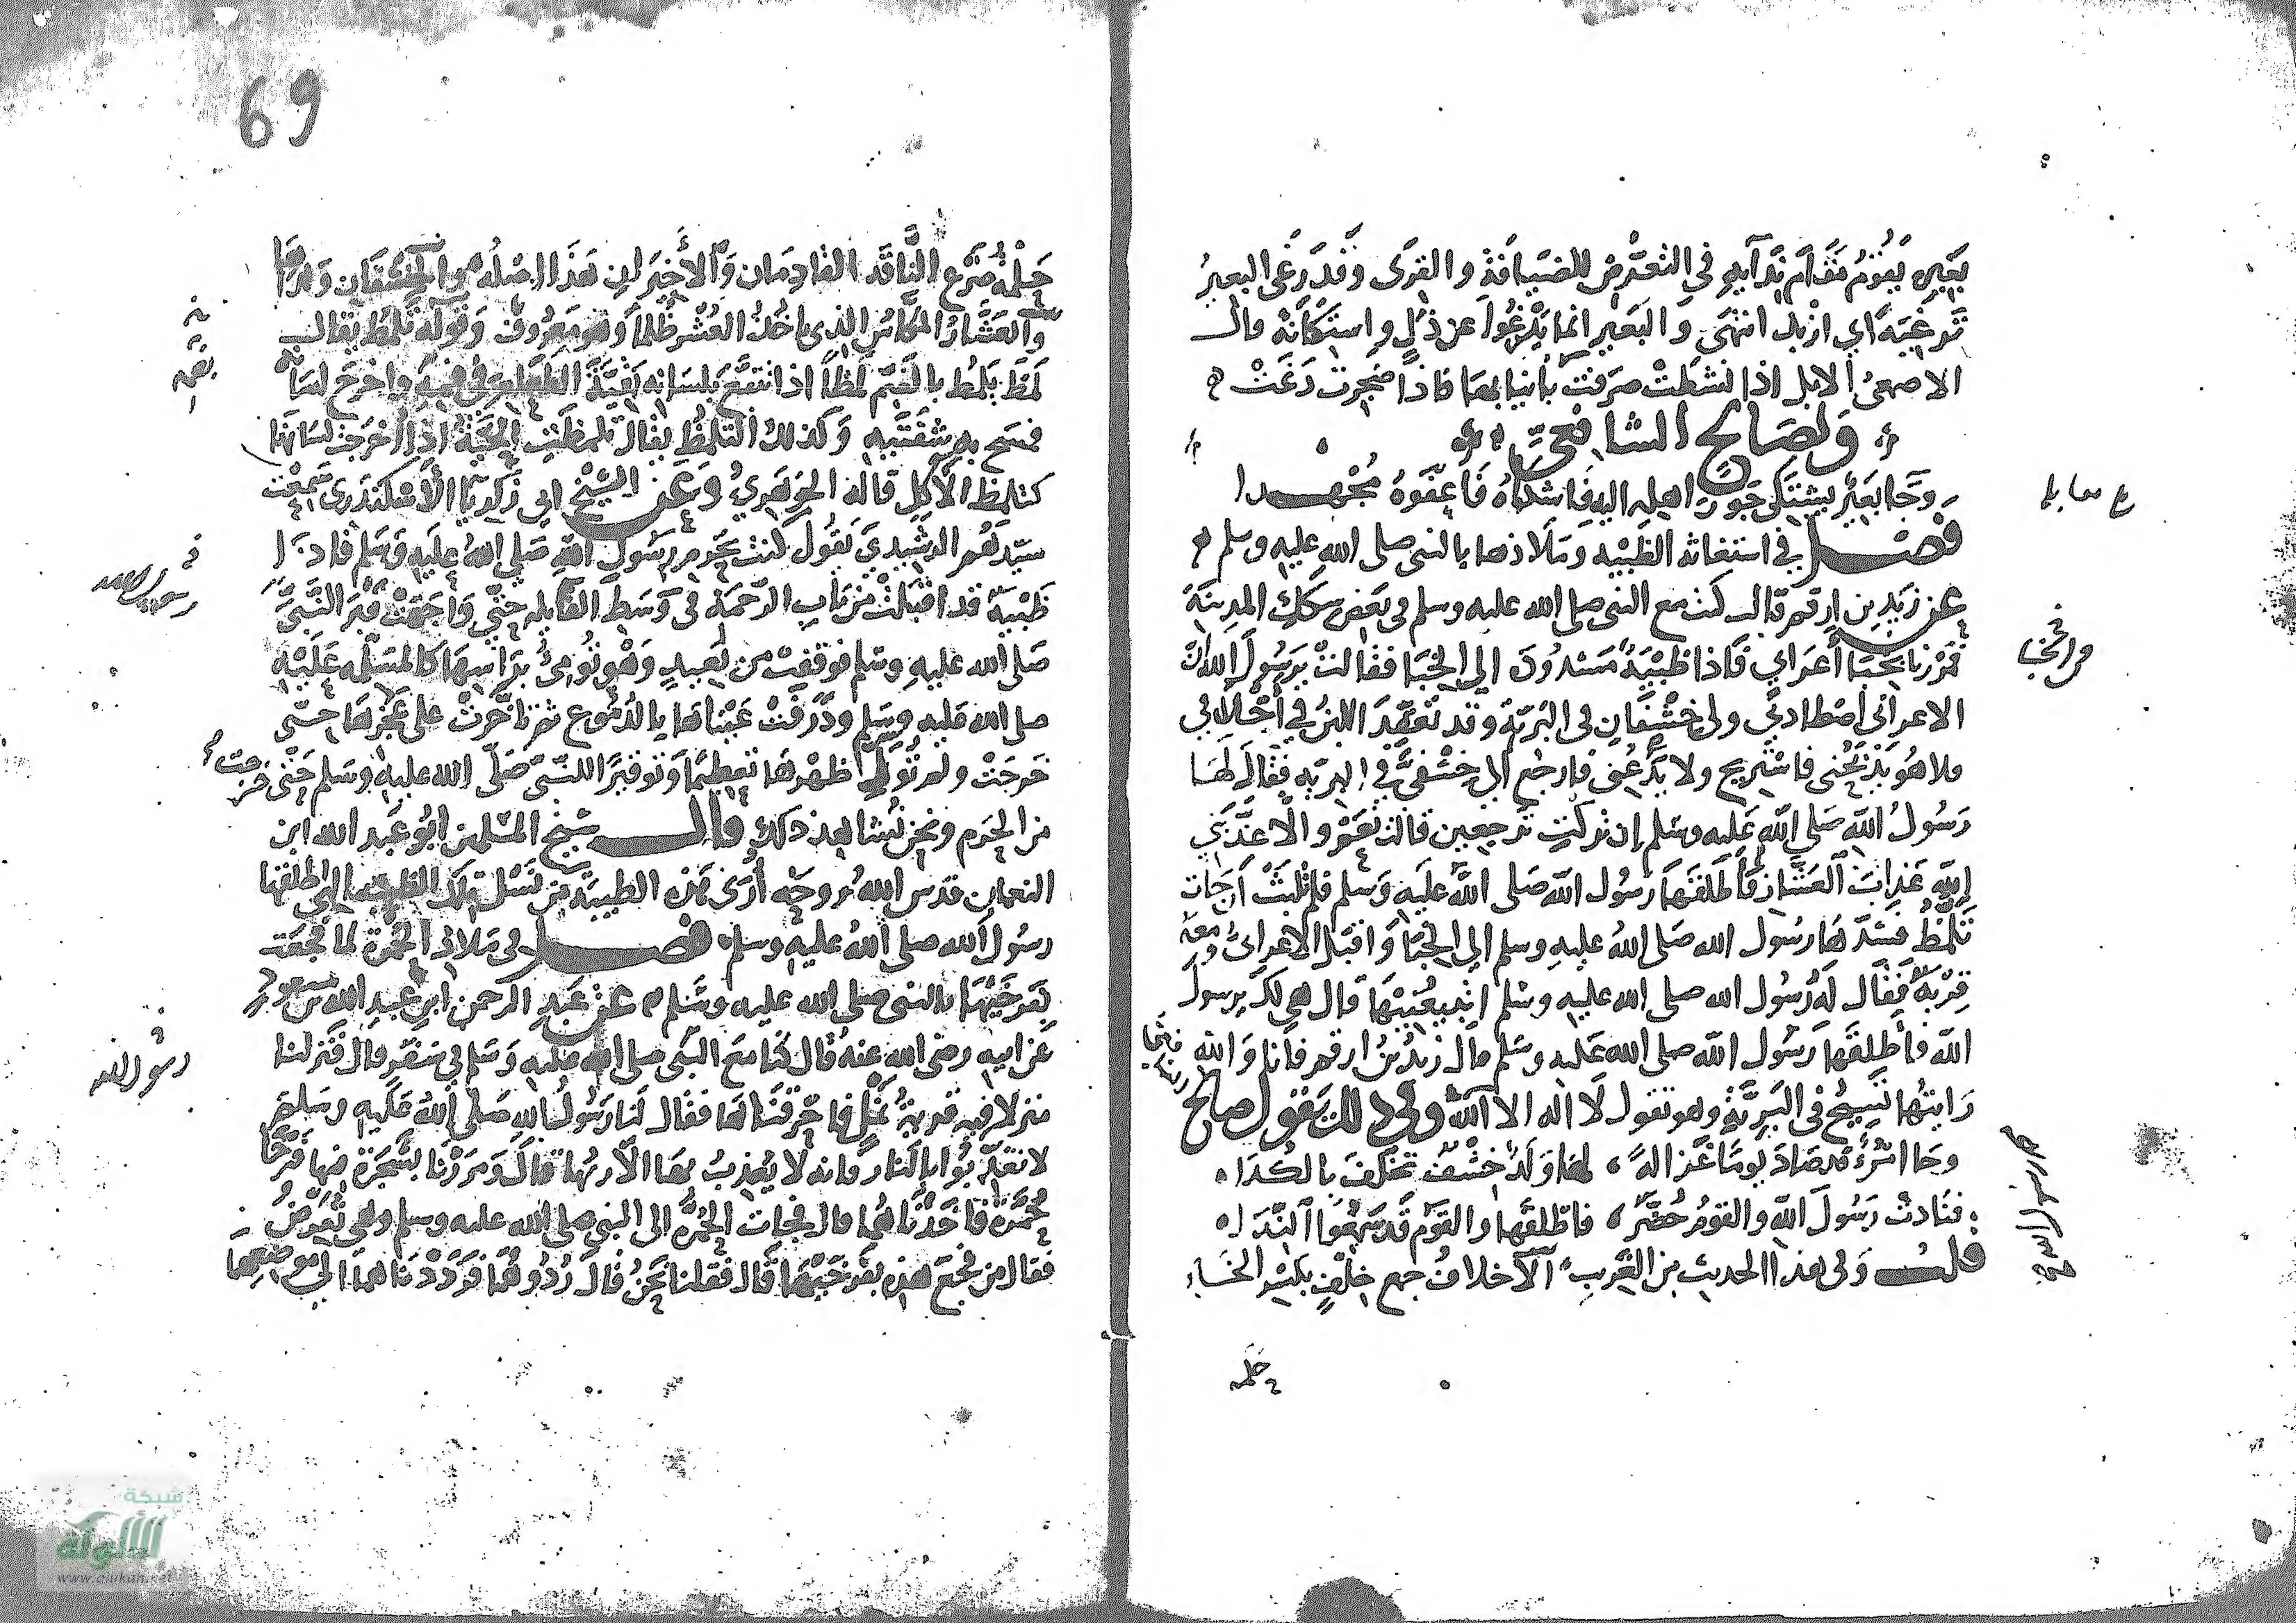 بعير يقوم مقام ندايه في التعرض للضيافة والقرى وقد رغى البعير
ترغية اي ازبد انتهى والبعير انما يرغوا عن ذل واستكانة قال
الاصمعي الابل اذا نشطت صرفت بأنيابها فاذا ضجرت رغت ه
ولصالح الشافعي
وجا بعير يشتكي جور اهله اليه فاشكاه فاعفوه مجهدا
فصل في استغاثه الظبيه وملاذها بالنبي صلى الله عليه وسلم
عن زيد بن ارقم قال كنت مع النبي صلى الله عليه وسلم في بعض سكك المدينة
فمررنا بخبا أعرابي فاذا ظبية مشدودة الي الخبا فقالت يرسول الله ان
الاعرابي اصطادني ولي خشفان في البرية وقد تعقد اللبن في أخلافي
فلا هو يذبحني فاستريح ولا يدعني فارجع الى خشفي في البريه فقال لها
رسول الله صلي الله عليه وسلم إن تركتك ترجعين قالت نعم والا عذبني
الله عذاب العشار فأطلقها رسول الله صلى الله عليه وسلم فلم تلبث أن جات
تلمظ فشدها رسول الله صلى الله عليه وسلم الي الخبا واقبل الاعرابي ومعه
قربة فقال له رسول الله صلى الله عليه وسلم اتبيعنيها قال هي لك يرسول
الله فأطلقها رسول الله صلى الله عليه وسلم قال زيد بن ارقم فانا والله
رايتها تسيح في البرية وهو تقول لا اله الا الله وفي ذلك يقول صالح
وجا امرء قد صاد يوما غزالة لها ولد خشف تخلف بالكدا
فنادت رسول الله والقوم حضر فاطلقها والقوم قد سمعوا الندا
قلت وفي هذا الحديث من الغريب الاخلاف جمع خلف بكسر الخاء
حلمة
ع مقابله
رسول الله
69
حلمة ضرع الناقة القادمان والأخيران هذا اصله والخشفان ولداها
والعشار المكاس الذي ياخذ العشر ظلما وهو معروف وقوله تلمظ يقال
لمظ يلمظ بالضم لمظا اذا تتبع بلسانه بقية الطعام في فيه واخرج لسانه
فمسح به شفتيه وكذلك التلمظ يقال تلمظت الحية اذا اخرجت لسانها
كتلمظ الاكل قاله الجوهري وعن الشيخ ابي زكريا الأسكندري سمعت
سيد نعم الرشيدي يقول كنت بحرم رسول الله صلى الله عليه وسلم فاذا
ظبية قد اقبلت من باب الرحمة في وسط القايله حتي واجهت قبر النبي
صلى الله عليه وسلم فوقفت من بعيد وهو تومئ براسها كالمسلمه عليه
صلى الله عليه وسلم وذرفت عيناها بالدموع ثم تأخرت على عجزها حتى
خرجت ولم تولي ظهرها تعظيما وتوقيرا للنبي صلى الله عليه وسلم حتى خرجت
من الحرم ونحن نشاهد ذلك قال شيخ المسلمين ابو عبد الله ابن
النعمان قدس الله روحه أرى هذه الظبية من نسل تلك الظبيه التي اطلقها
رسول الله صلى الله عليه وسلم فصل في ملاذ الحمرة لما فجعت
بفرخيها بالنبي صلى الله عليه وسلم عن عبد الرحمن ابن عبد الله بن مسعود
عن ابيه رضى الله عنه قال كنا مع النبي صلى الله عليه وسلم في سفر قال فنزلنا
منزلا فيه قرية نمل فاحرقناها فقال لنا رسول الله صلى الله عليه وسلم
لا تعذبوا بالنار فانه لا يعذب بها الا ربها قال ومررنا بشجرة فيها فرخا
حمرة فاخذناهما قال فجات الحمرة الى النبي صلى الله عليه وسلم وهي تعرض
فقال من فجع هذه بفرخيها قال فقلنا نحن قال ردوهما فرددناهما الى موضعهما
رسول الله
رسول الله
شبكة
الألوكة
www.alukah.net